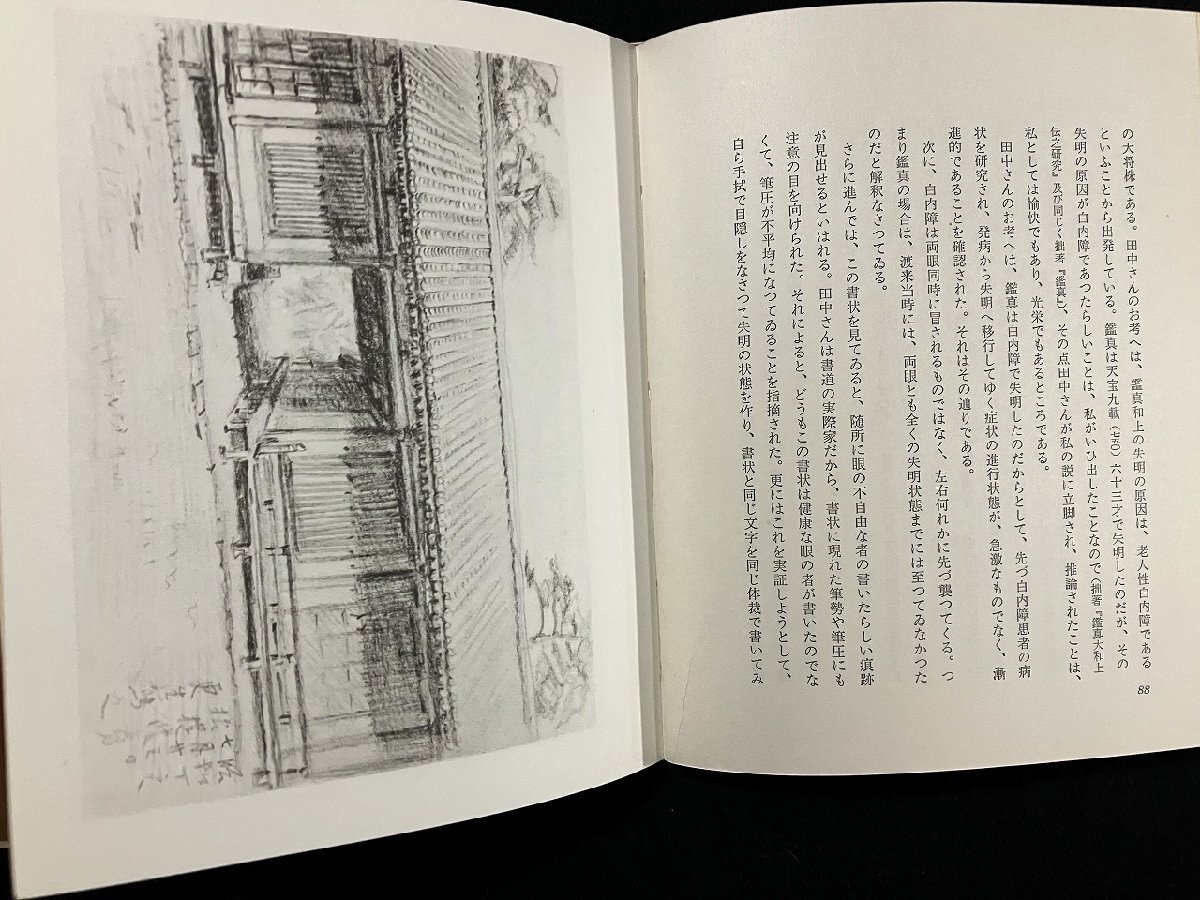 の大将株である。田中さんのお考へは、鑑真和上の失明の原因は、老人性白内障である
といふことから出発している。鑑真は天宝九載（七五〇）六十三才で失明したのだが、その
失明の原因が白内障であつたらしいことは、私がいひ出したことなので（拙著『鑑真大和上
伝之研究』及び同じく拙著『鑑真』）、その点田中さんが私の説に立脚され、推論されたことは、
私としては愉快でもあり、光栄でもあるところである。
田中さんのお考へは、鑑真は白内障で失明したのだからとして、先づ白内障患者の病
状を研究され、発病から失明へ移行してゆく症状の進行状態が、急激なものでなく、漸
進的であることを確認された。それはその通りである。
次に、白内障は両眼同時に冒されるものではなく、左右何れかに先づ襲つてくる。つ
まり鑑真の場合は、渡来当時には、両眼とも全くの失明状態までには至つてゐなかつた
のだと解釈なさつてゐる。
さらに進んでは、この書状を見てゐると、随所に眼の不自由な者の書いたらしい痕跡
が見出せるといはれる。田中さんは書道の実際家だから、書状に現れた筆勢や筆圧にも
注意の目を向けられた。それによると、どうもこの書状は健康な眼の者が書いたのでな
くて、筆圧が不平均になつてゐることを指摘された。更にはこれを実証しようとして、
自ら手拭で目隠しをなさつて失明の状態を作り、書状と同じ文字を同じ体裁で書いてみ
88